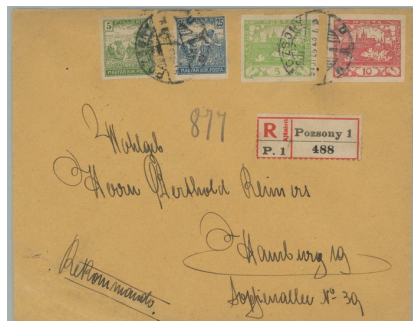 5
MAGYAR KIR. POSTA
25
MAGYAR KIR. POSTA
5
10
POZSONY
877
R Ajánlott Pozsony 1
P. 1 488
Wohlgeb
Herrn Berthold Reimers
Hamburg 19
Sophienallee No 39
Rekommando